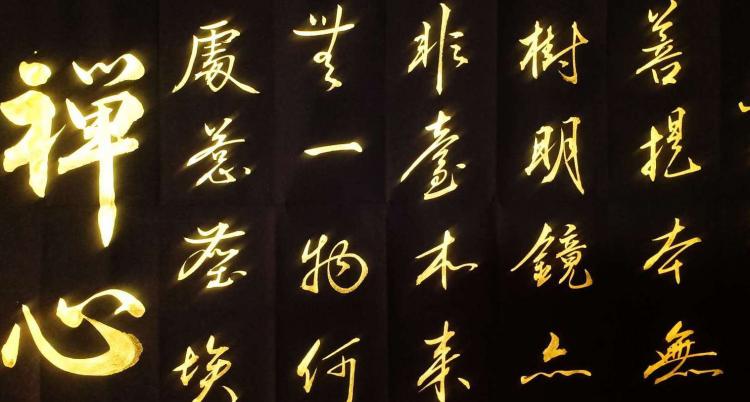 菩提本無
樹明鏡亦
非臺本來
無一物何
處惹塵埃
禪心